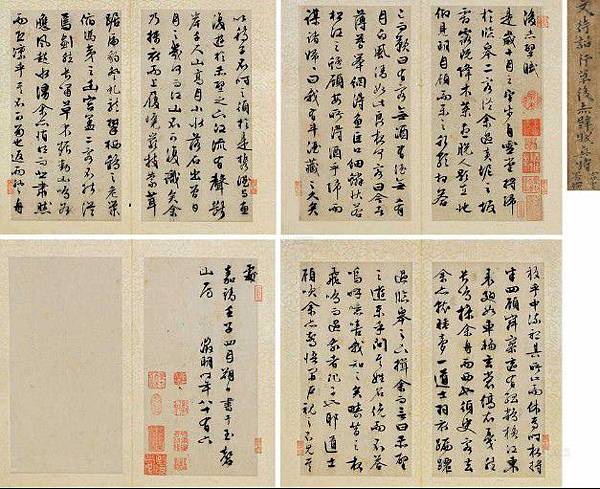 文待詔行草後赤壁賦真蹟
後赤壁賦
是歲十月之望步自雪堂將歸
於臨皋二客從余過黃泥之坂
霜露既降木葉盡脫人影在地
仰見明月顧而樂之行歌相答
已而歎曰有客無酒有酒無肴
月白風清如此良夜何客曰今者
薄暮舉網得魚巨口細鱗狀如
松江之鱸顧安所得酒乎歸而
謀諸婦婦曰我有斗酒藏之久矣
以待子不時之須於是攜酒與魚
復遊於赤壁之下江流有聲斷
岸千尺山高月小水落石出曾日
月之幾何而江山不可復識矣余
乃攝衣而上履巉巖披蒙茸
踞虎豹登虬龍攀栖鶻之危巢
俯馮夷之幽宮蓋二客不能從
焉劃然長嘯草木震動山鳴谷
應風起水湧余亦悄然而悲肅然
而恐凜乎其不可留也返而登舟
放乎中流聽其所止而休焉時夜將
半四顧寂寥適有孤鶴橫江東
來翅如車輪玄裳縞衣戛然
長鳴掠余舟而西也須臾客去
余亦就睡夢一道士羽衣蹁躚
過臨皋之下揖余而言曰赤壁
之遊樂乎問其姓名俛而不答
嗚呼噫嘻我知之矣疇昔之夜
飛鳴而過我者非子也耶道士
顧笑余亦驚悟開戶視之不見其
處
嘉靖壬子四月朔日書于玉磬
山房
徵明時年八十有